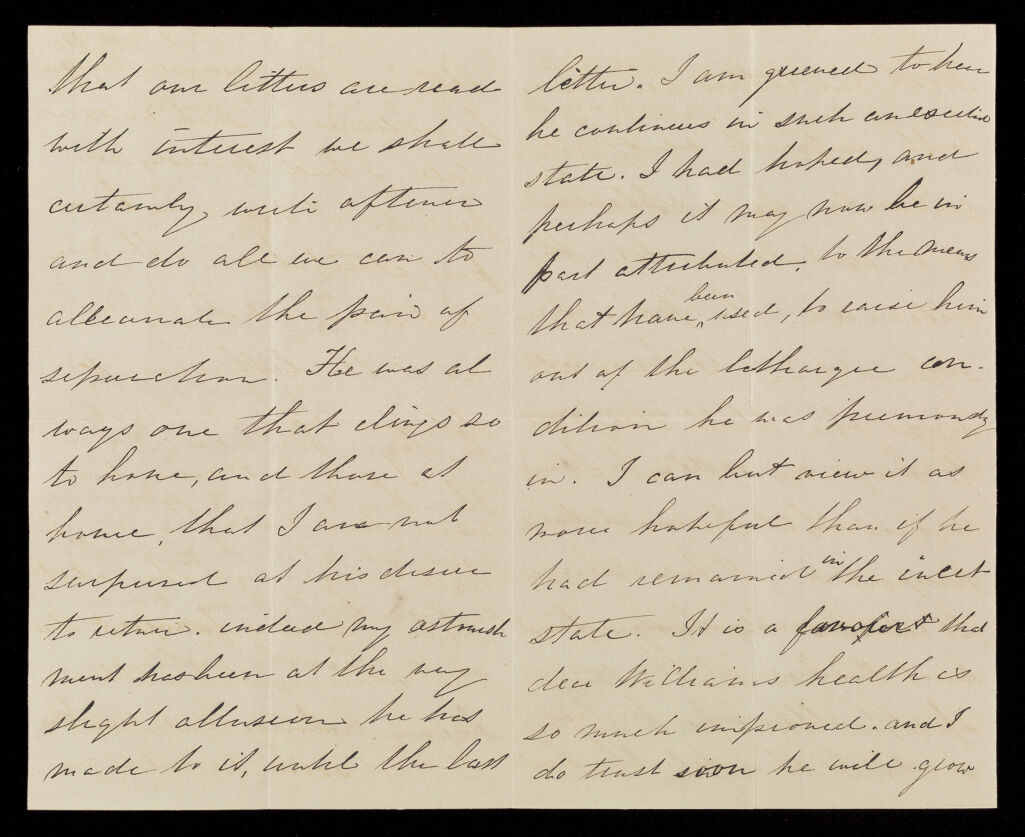 that our letters are read
with interest we shall
certainly write oftener
and do all we can to
alleavate the pain of
separation. He was al
ways one that clings so
to home, and those at
home, that I am not
surprised at his desire
to return. indeed my astonish
ment has been at the very
slight allusion he has
made to it, until the last
letter. I am grieved to hear
he continues in such an excited
state. I had hoped, and
perhaps it may now be in
part attributed, to the means
that have been used, to raise him
out of the lethargic con-
dition he was previously
in. I can but view it as
more hopeful than if he
had remained in the inert
state. It is a comfort that
dear Williams health is
so much improved. and I
do trust soon he will grow